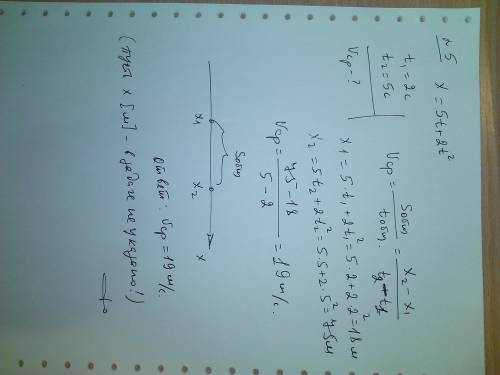 №5 x = 5t+2t²
t₁ = 2c
t₂ = 5c
Vср - ?
Vср = Sобщ / tобщ. = x₂ - x₁ / t₂ - t₁
x₁ = 5·t₁+2t₁² = 5·2+2·2² = 18м
x₂ = 5t₂+2t₂² = 5·5+2·5² = 75м
Vср = 75-18 / 5-2 = 19 м/с.
Sобщ
x₁ x₂ x
Ответ: Vср = 19 м/с.
(пусть x [м] - в задаче не указано!)